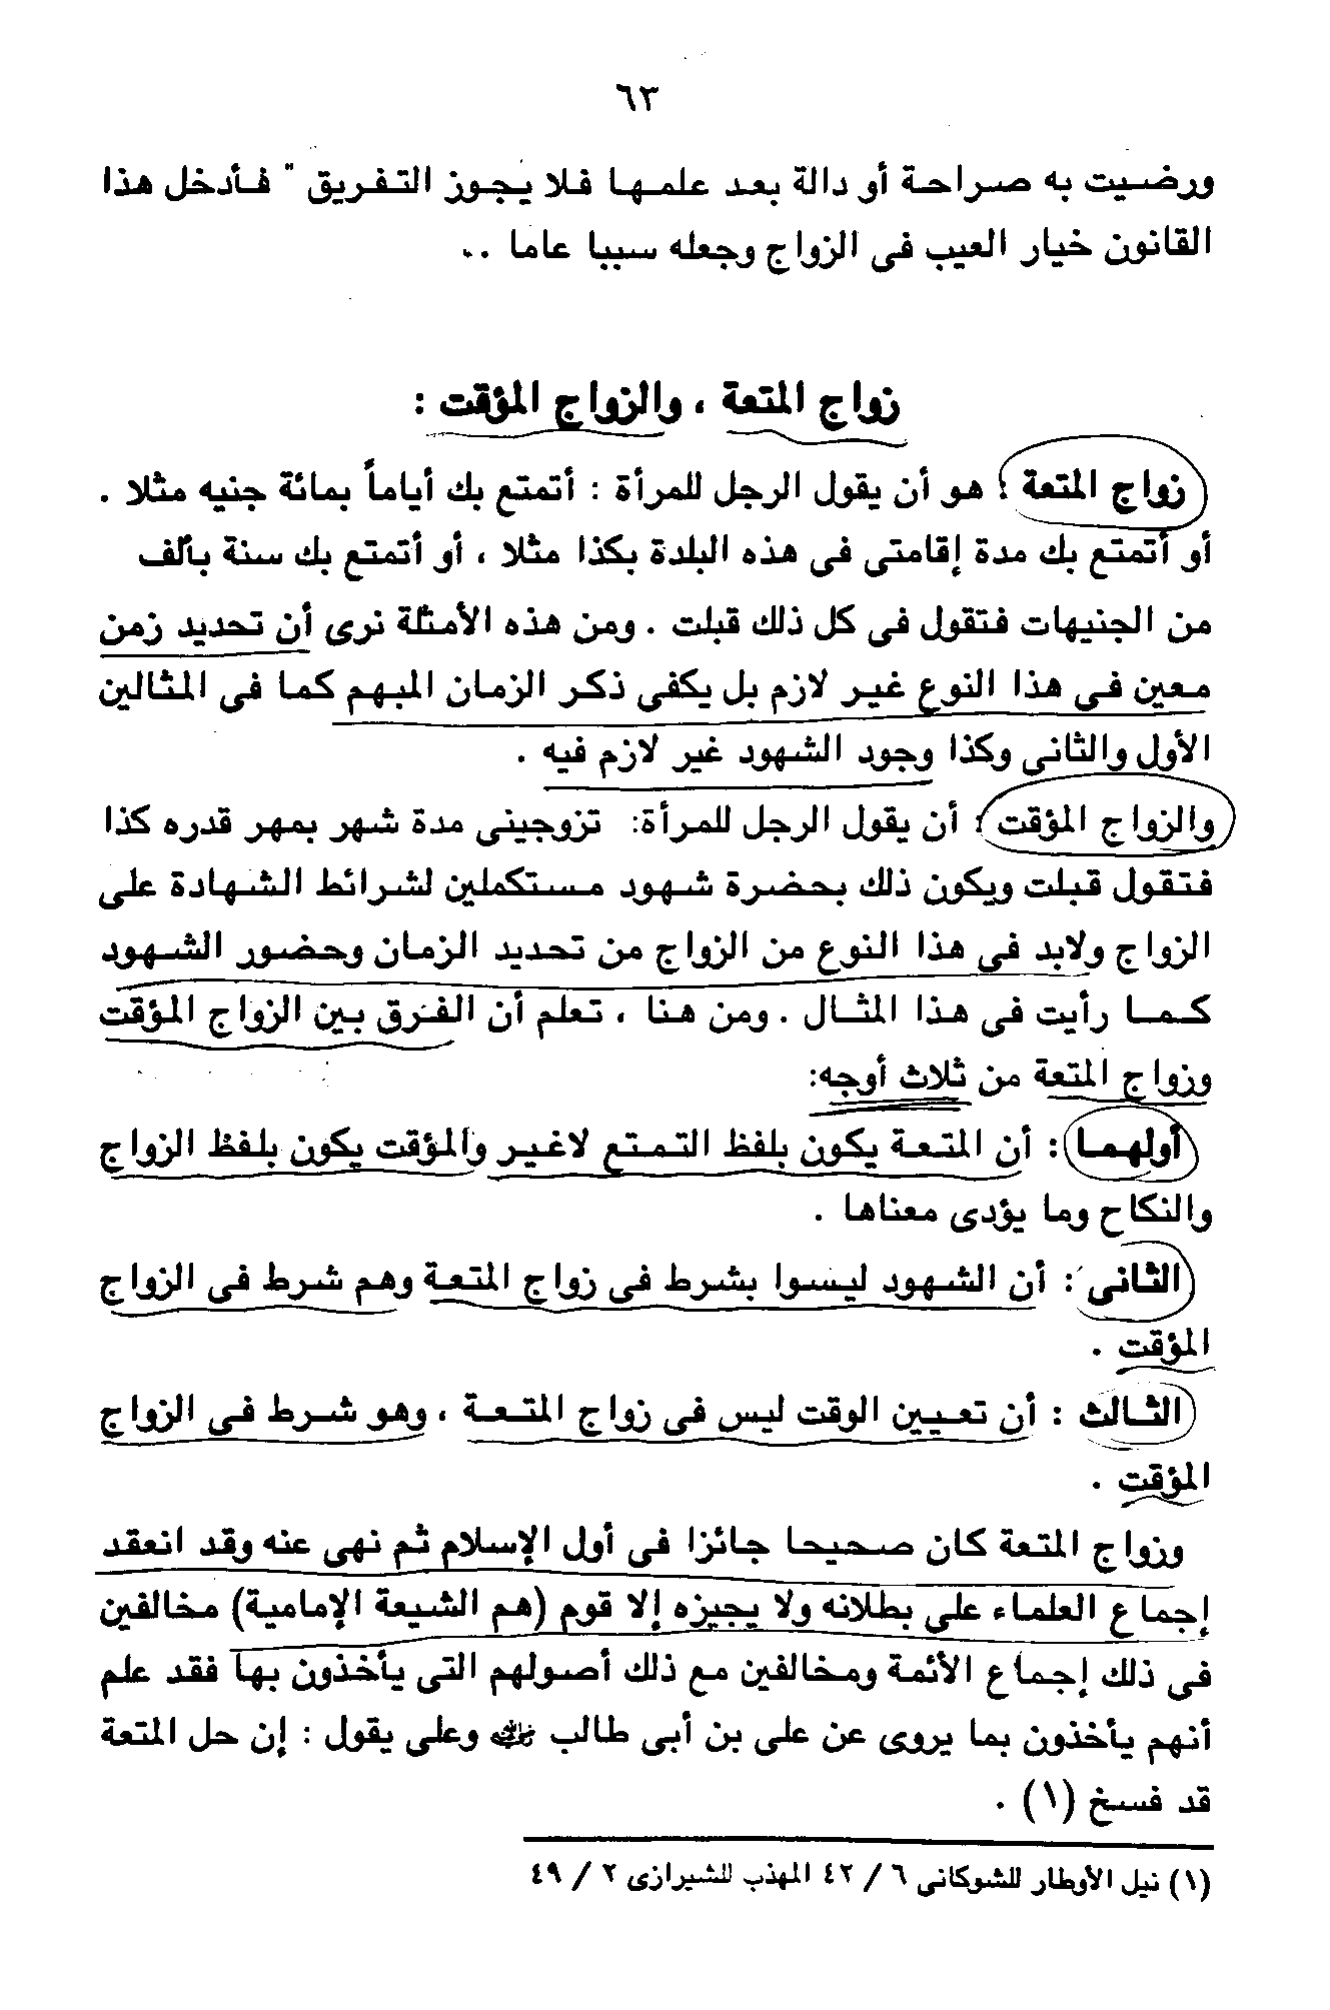 ٦٣
ورضيت به صراحة أو دالة بعد علمها فلا يجوز التفريق " فأدخل هذا
القانون خيار العيب فى الزواج وجعله سببا عاما ..
زواج المتعة ، والزواج المؤقت :
زواج المتعة : هو أن يقول الرجل للمرأة : أتمتع بك أياماً بمائة جنيه مثلا .
أو أتمتع بك مدة إقامتى فى هذه البلدة بكذا مثلا ، أو أتمتع بك سنة بألف
من الجنيهات فتقول فى كل ذلك قبلت . ومن هذه الأمثلة نرى أن تحديد زمن
معين فى هذا النوع غير لازم بل يكفى ذكر الزمان المبهم كما فى المثالين
الأول والثانى وكذا وجود الشهود غير لازم فيه .
والزواج المؤقت : أن يقول الرجل للمرأة: تزوجينى مدة شهر بمهر قدره كذا
فتقول قبلت ويكون ذلك بحضرة شهود مستكملين لشرائط الشهادة على
الزواج ولابد فى هذا النوع من الزواج من تحديد الزمان وحضور الشهود
كما رأيت فى هذا المثال . ومن هنا ، تعلم أن الفرق بين الزواج المؤقت
وزواج المتعة من ثلاث أوجه:
أولهما : أن المتعة يكون بلفظ التمتع لاغير والمؤقت يكون بلفظ الزواج
والنكاح وما يؤدى معناها .
الثانى : أن الشهود ليسوا بشرط فى زواج المتعة وهم شرط فى الزواج
المؤقت .
الثالث : أن تعيين الوقت ليس فى زواج المتعة ، وهو شرط فى الزواج
المؤقت .
وزواج المتعة كان صحيحا جائزا فى أول الإسلام ثم نهى عنه وقد انعقد
إجماع العلماء على بطلانه ولا يجيزه إلا قوم (هم الشيعة الإمامية) مخالفين
فى ذلك إجماع الأئمة ومخالفين مع ذلك أصولهم التى يأخذون بها فقد علم
أنهم يأخذون بما يروى عن على بن أبى طالب رضي الله عنه وعلى يقول : إن حل المتعة
قد فسخ (١) .
(١) نيل الأوطار للشوكانى ٦ / ٤٢ المهذب للشيرازى ٢ / ٤٩